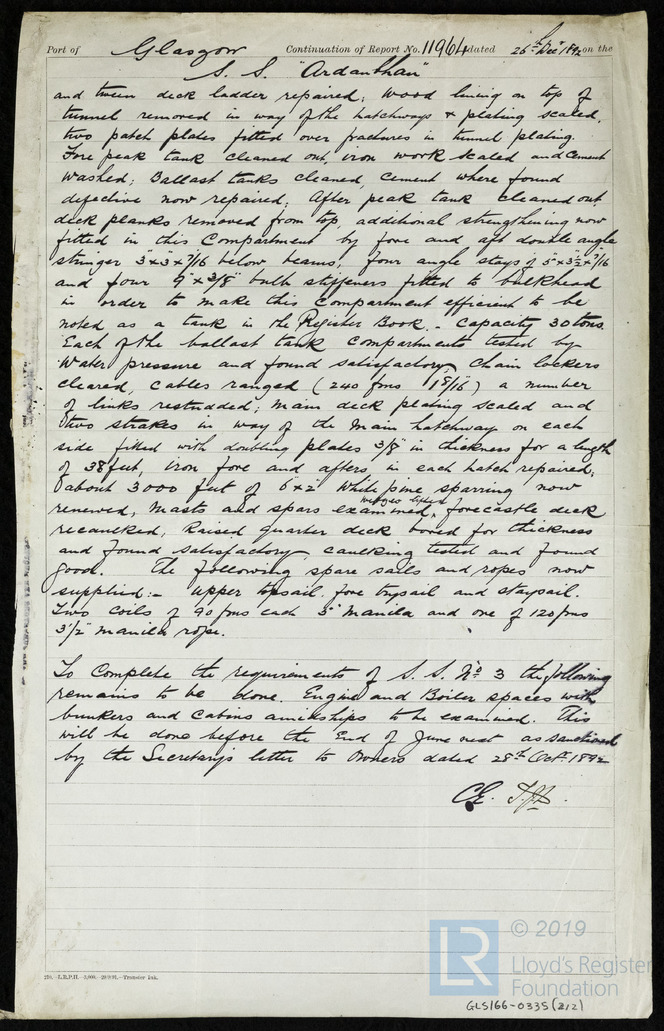 Port of Glasgow Continuation of Report No. 11964 dated 26th Decr 1892 on the
S. S. "Ardanbhan"
and tween deck ladder repaired; wood lining on top of
tunnel removed in way of the hatchways & plating scaled,
two patch plates fitted over fractures in tunnel plating.
Fore peak tank cleaned out, iron work scaled and cement
washed; Ballast tanks cleaned, cement where found
defective now repaired; After peak tank cleaned out
deck planks removed from top, additional strengthening now
fitted in this compartment by fore and aft double angle
stringer 3"x3x7/16 below beams, four angle stays of 5"x3½x7/16
and four 9"x3/8" bulb stiffeners fitted to bulkhead
in order to make this compartment efficient to be
noted as a tank in the Register Book. - Capacity 30 tons.
Each of the ballast tank compartments tested by
water pressure and found satisfactory, chain lockers
cleared, cables ranged (240 fms 1 8/16) a number
of links restudded; main deck plating scaled and
two strakes in way of the main hatchway on each
side fitted with doubling plates 3/8" in thickness for a length
of 38 feet, iron fore and afters in each hatch repaired;
about 3000 feet of 6"x2" white pine sparring now
renewed, masts and spars examined, wedges lifted, forecastle deck
recaulked, Raised quarter deck bored for thickness
and found satisfactory, caulking tested and found
good. The following spare sails and ropes now
supplied:- upper topsail, fore trysail and staysail.
Two coils of 90 fms each 3" Manila and one of 120 fms
3½" manila rope.
To complete the requirements of S. S. No 3 the following
remains to be done. Engine and Boiler spaces with
bunkers and cabins amidships to be examined. This
will be done before the end of June next as sanctioned
by the Secretary's letter to Owners dated 28th Oct. 1892
210.-L.R.P.H.-3,000.- -Transfer Ink.
LR © 2019
Lloyd's Register
Foundation
GLS166-0335(2/2)